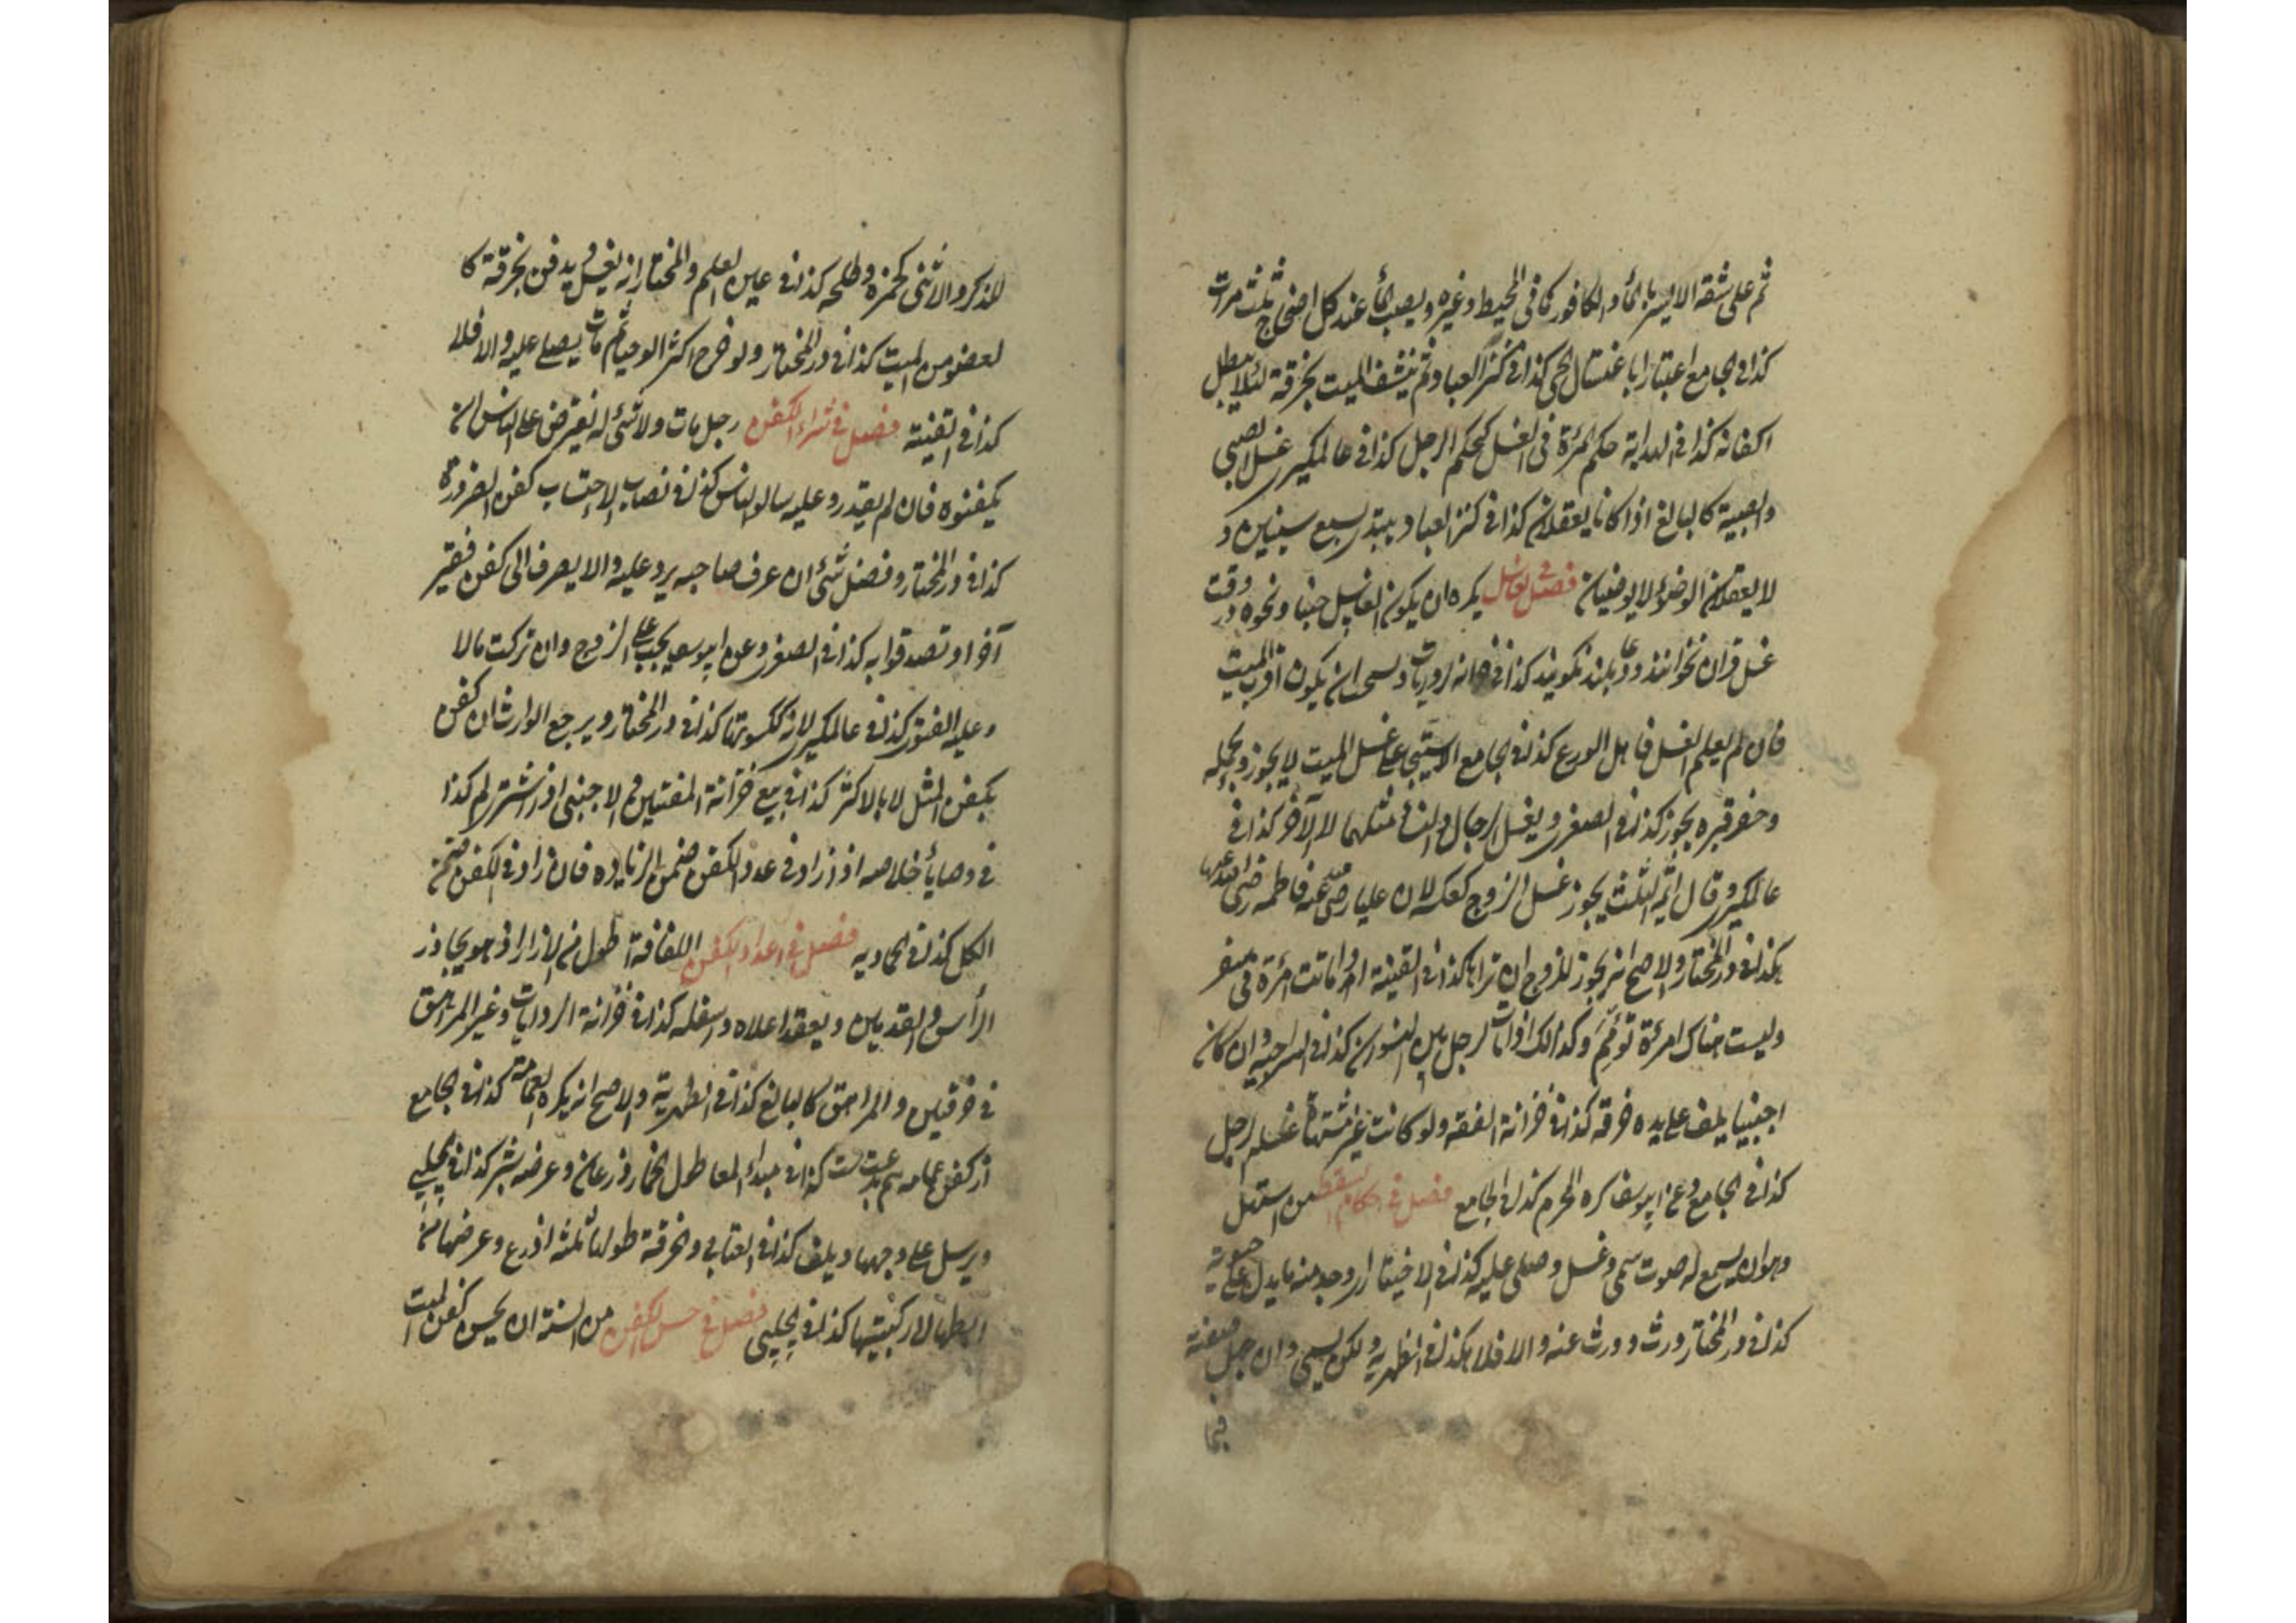 ثم على شقه الايسر بماء والكافور كما فى المحيط وغيره ويصب الماء عند كل اضجاع ثلث مرات
كذا فى الجامع اعتبارا باغتسال الحى كذا فى كنز العباد ثم ينشف الميت بخرقة لئلا يبطل
اكفانه كذا فى الهداية حكم المرءة فى الغسل كحكم الرجل كذا فى عالمكير غسل الصبى
والصبية كالبالغ اذا كانا يعقلان كذا فى كنز العباد سبع سنين و
لا يعقلان الوضوء لا يوضيان فصل فى الغاسل يكره ان يكون الغاسل جنبا ونحوه در وقت
غسل قران نخوانند ودعا بلند نكويند كذا فى خزانة الروايات ويستحب ان يكون اقرب الميت
فان لم يعلم الغسل فاهل الورع كذا فى الجامع الاستيجار على غسل الميت لا يجوز وبحمله
وحفر قبره يجوز كذا فى الصغرى ويغسل الرجال والنساء مثلهما لا الآخر كذا فى
عالمكير وقال ائمة الثلث يجوز غسل الزوج كعكسه لان عليا رضى عنه فاطمه رضى الله عنها
هكذا فى در المختار والاصح انه يجوز للزوج ان تراها كذا فى القينة اذا ماتت امرءة فى سفر
وليست هناك امرءة تؤمم وكذالك اذا مات رجل بين النسوان كذا فى السراجيه وان كان
اجنبيا يلف على يده خرقه كذا فى خزانة الفقه ولو كانت غير مشتهاة غسله الرجل
كذا فى الجامع وعن ابيوسف كره المحرم كذا فى الجامع فصل فى احكام السقط من استهل
وهو ان يسمع له صوت سمى وغسل وصلى عليه كذا فى الاختيار او وجد منه ما يدل على حيوته
كذا فى در المختار ورث وورث عنه والا فلا هكذا فى الظهيريه ولكن يسمى وان جهل صفته
للذكر والانثى كحمزه وطلحه كذا فى عين العلم والمختار انه يغسل ويدفن بخرقة كا
لعضو من الميت كذا فى در المختار ولو خرج اكثر الولد حيا ثم مات يصلى عليه والا فلا
كذا فى القنية فصل فى شراء الكفن رجل مات ولا شئ له يفترض على الناس ان
يكفنوه فان لم يقدروا عليه سالوا الناس كذا فى نصاب الاحتساب كفن الضرورة
كذا فى در المختار وفضل شئ ان عرف صاحبه يرد عليه والا يصرف الى كفن فقير
آخر او تصدقوا به كذا فى الصغرى وعن ابيوسف يجب على الزوج وان تركت مالا
وعليه الفتوى كذا فى عالمكير لانه ككسوتها كذا فى در المختار ويرجع الوارث ان كفن
بكفن المثل لا بالاكثر كذا فى بيع خزانة المفتيين والاجنبى اذا اشترى لم كذا
فى وصايا خلاصه اذا زاد فى عدد الكفن ضمن الزياده فان زاد فى الكفن ضمن
الكل كذا فى الحاويه فصل فى اعداد الكفن اللفافة اطول من الازار اذ هو يجاوز
الرأس والقدمين ويعقد اعلاه واسفله كذا فى خزانة الروايات وغير المراهق
فى خرقتين والمراهق كالبالغ كذا فى الظهيرية والاصح انه يكره العمامة كذا فى الجامع
از كفن عمامه هم بدعت ست كذا فى مبداء المعاد طول الخمار ذرعان وعرضه شبر كذا فى الچلپى
ويرسل على وجهها ويلف كذا فى العتابى والخرقة طولها ثلثه اذرع وعرضها من
ابطها لا ركبتيها كذا فى الچلپى فصل فى حسن الكفن من السنة ان يحسن كفن الميت